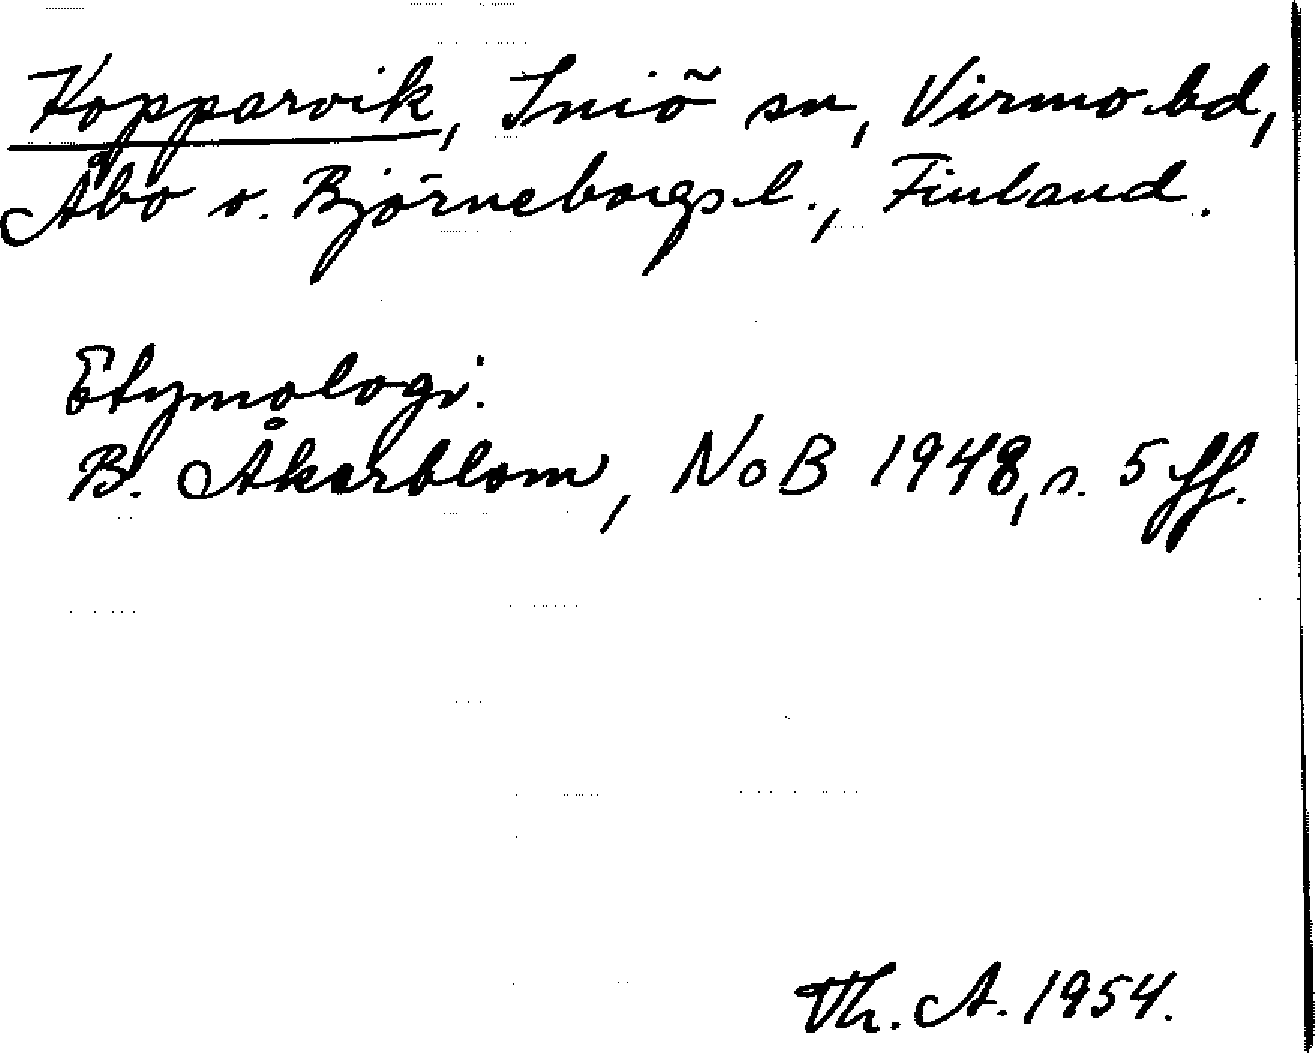 Kopparvik, Iniö sn, Virmo hd,
Åbo o. Björneborgs l., Finland.
Etymologi:
B. Åkerblom, NoB 1948, s. 5 ff.
Th. A. 1954.